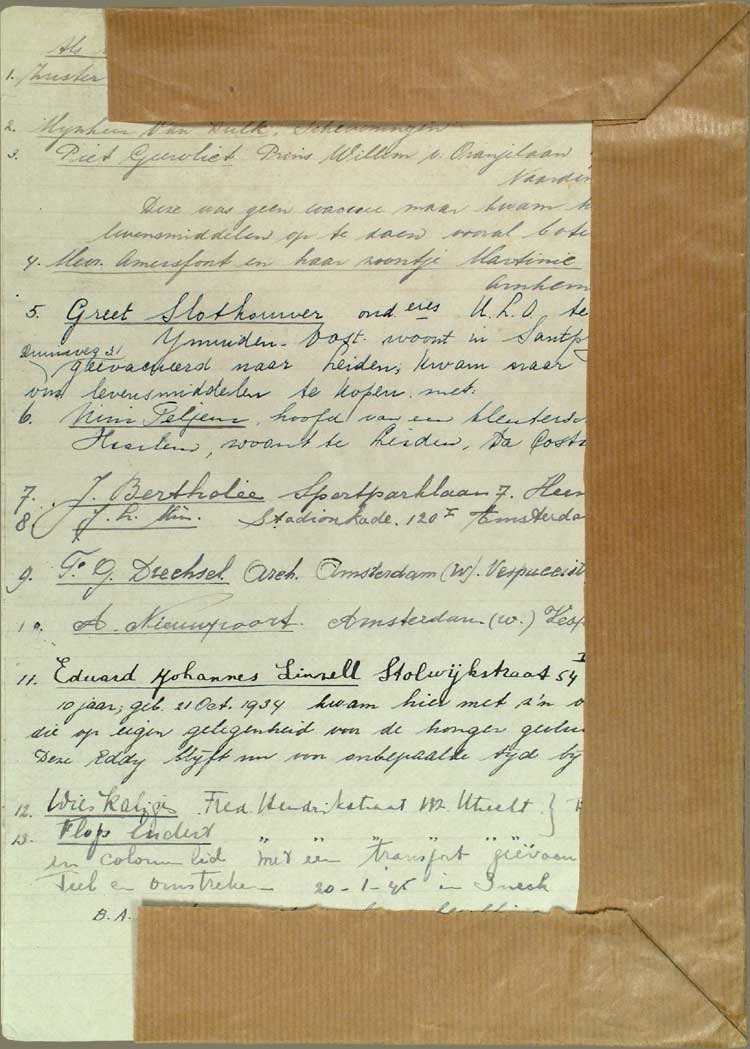 Als
1. Zuster
2. Mynheer Van Dulk. Scheveningen
3. Piet Goevliet Prins Willem v. Oranjelaan
Naarden
Deze was geen evacuee maar kwam
levensmiddelen op te doen vooral bote
4. Mevr. Amersfoort en haar zoontje Martinie
Arnhem
5. Greet Slothouwer onderes U.L.O. te
Ymuiden-Oost. woont in Santp
Duinweg 31
geëvacueerd naar Leiden; kwam naar
om levensmiddelen te kopen. met:
6. hoofd van een kleutersc
Haarlem, woont te Leiden, Da Costa
7. J. Bertholee Sportparklaan 7. Heem
8. J. H. Stadionkade. 120 I Amsterda
9. F. G. Drechsel Arch. Amsterdam (W). Vespuccistr
10. A. Nieuwpoort. Amsterdam (W.) Vesp
11. Eduard Johannes Linzell Stolwijkstraat 54 I
10 jaar; geb. 21 Oct. 1934 kwam hier met z'n v
die op eigen gelegenheid voor de honger gevluc
Deze Eddy blyft nu voor onbepaalde tyd by
12. Wies Kalizis Fred. Hendrikstraat Utrecht }
13. Flops Lindert " " " " "
en met een transport geëvacu
Tiel en omstreken 20-1-45 in Sneek
B.A.